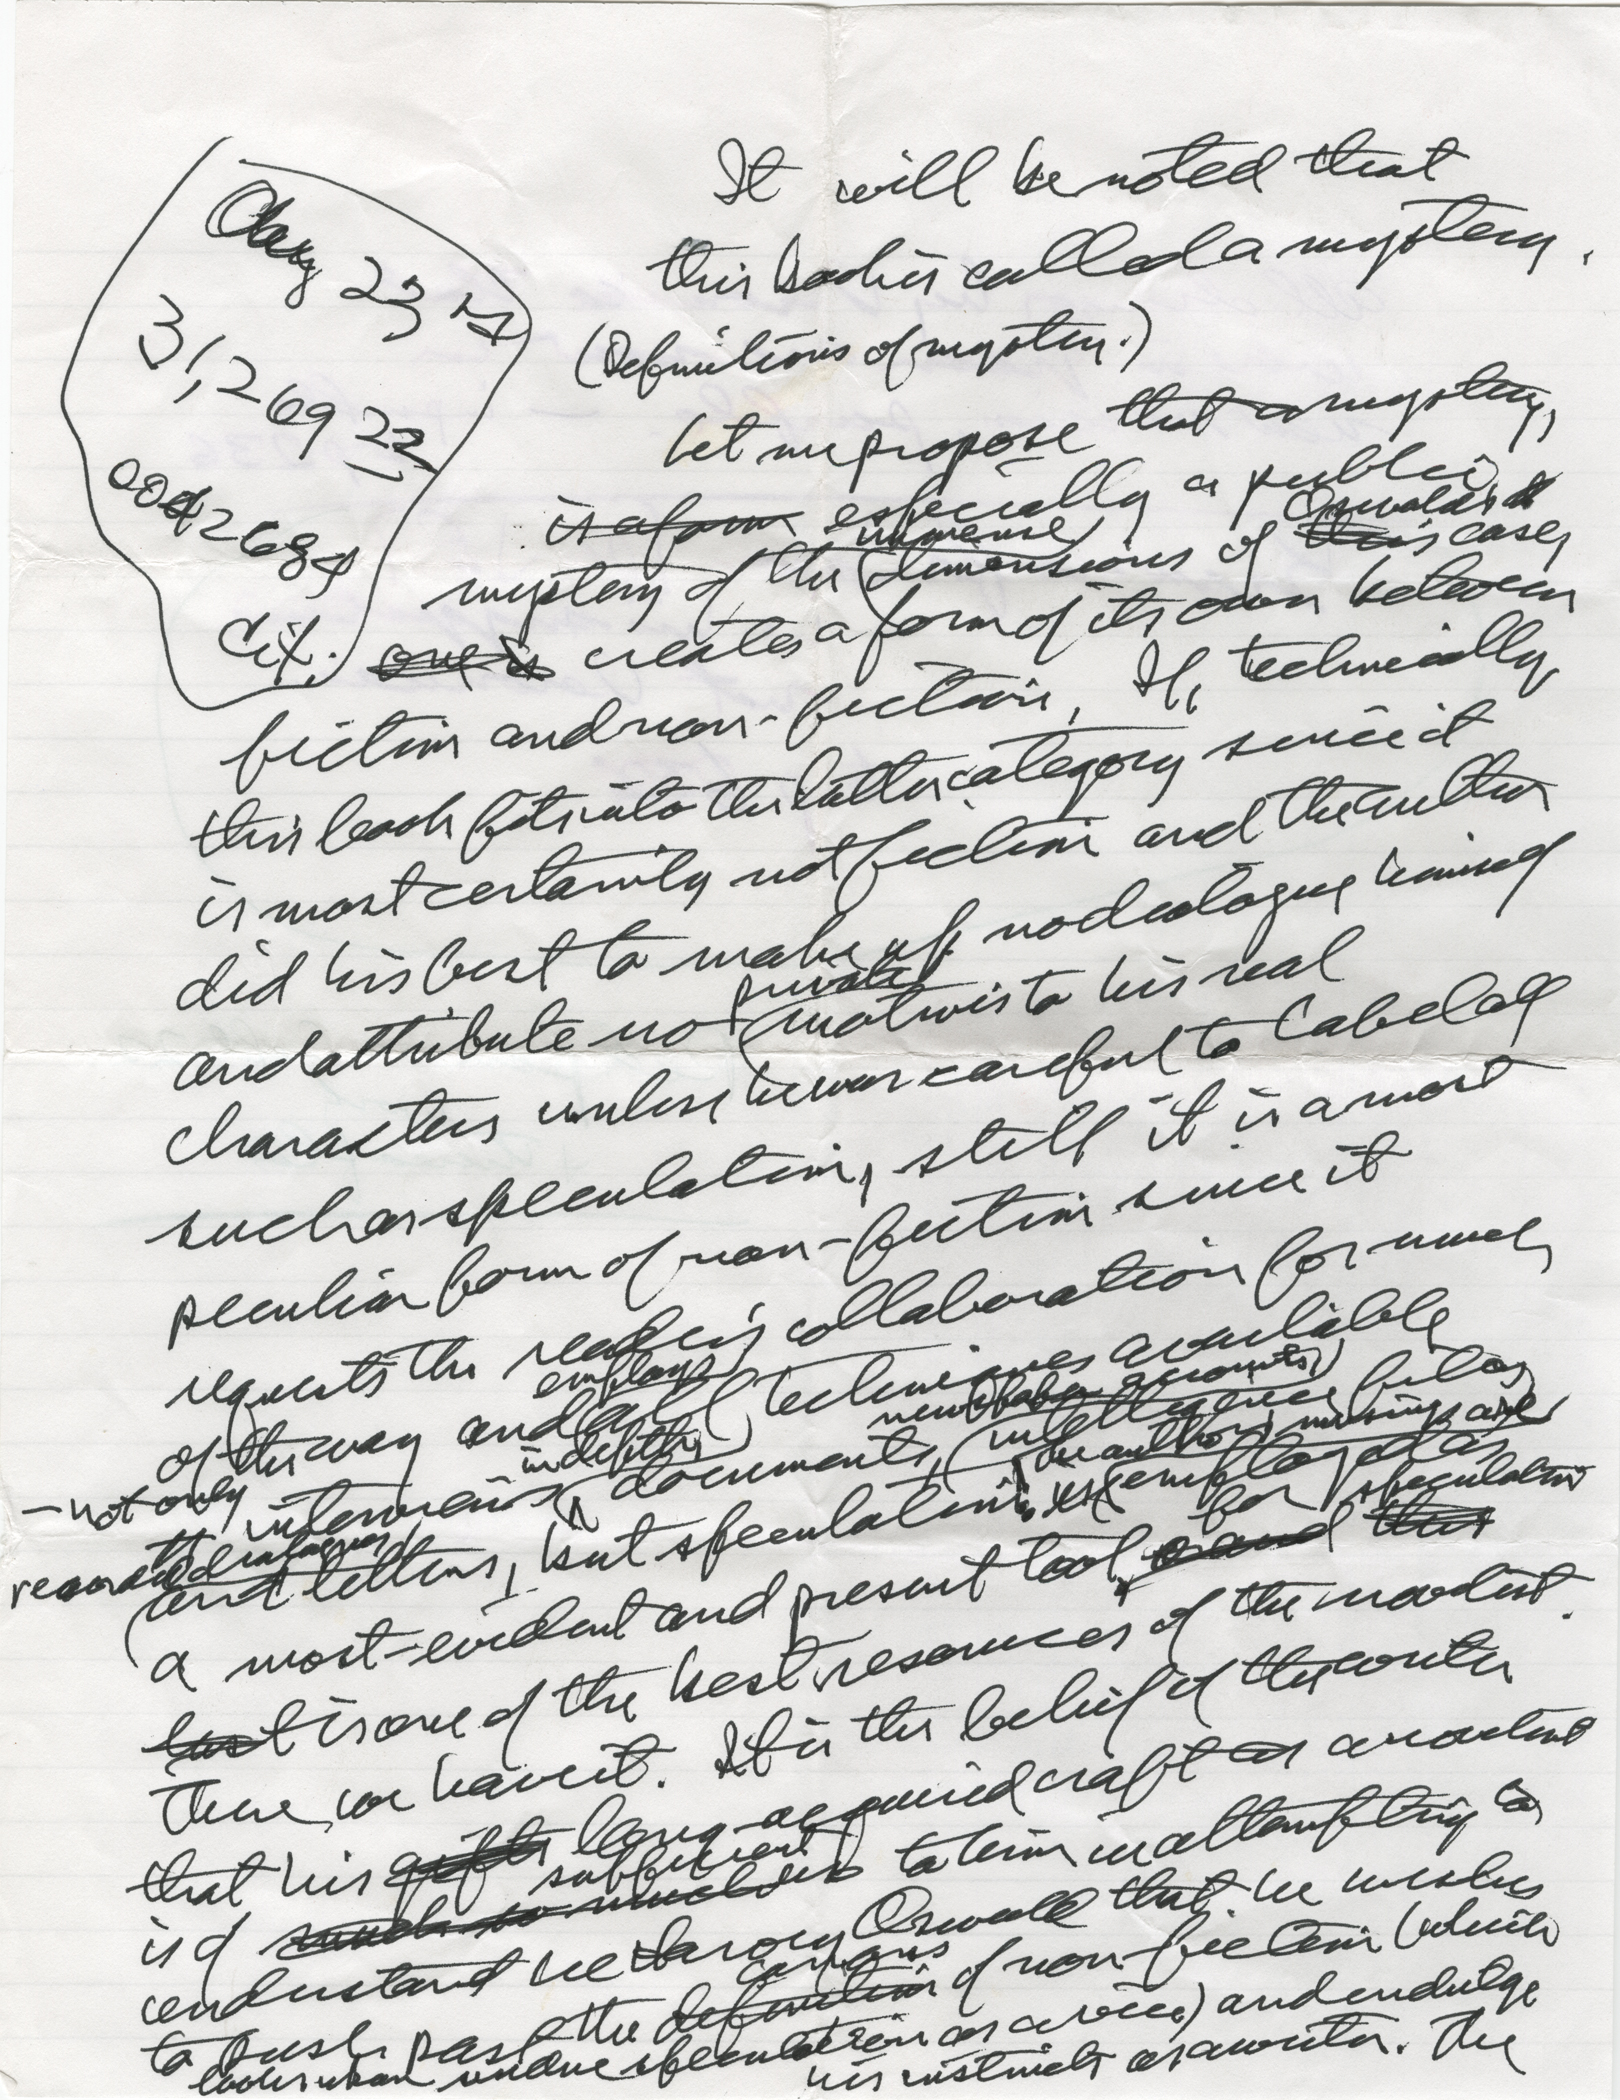 It will be noted that
this book is called a mystery.
(Definitions of mystery.)
Let me propose that a mystery,
is a form especially a public
immense Oswald's
mystery of the dimensions of this case,
one is creates a form of its own between
fiction and non-fiction. If, technically,
this book fits into the latter category since it
is most certainly not fiction and the author
did his best to make up no dialogue himself
private
and attribute no motives to his real
characters unless he was careful to label all
such as speculation, still it is a most
peculiar form of non-fiction since it
requests the reader's collaboration for much
employs
of the way and all techniques available
in depth newspaper accounts,
- not only interviews, documents, intelligence files,
the author's musings are
recorded dialogues,
and letters, but speculation is employed as
for speculation
a most evident and present tool, and this
but is one of the best resources of the novelist.
There, we have it. It is the belief of the writer
that his gifts long-acquired craft as a novelist
sufficient
is of much to him in attempting to
understand Lee Harvey Oswald that he wishes
canons
to push past the definition of non fiction (which
looks upon undue speculation as a vice) and indulge
his instincts as a writer. The
May 23rd
31,269 22
0042684
Cit.